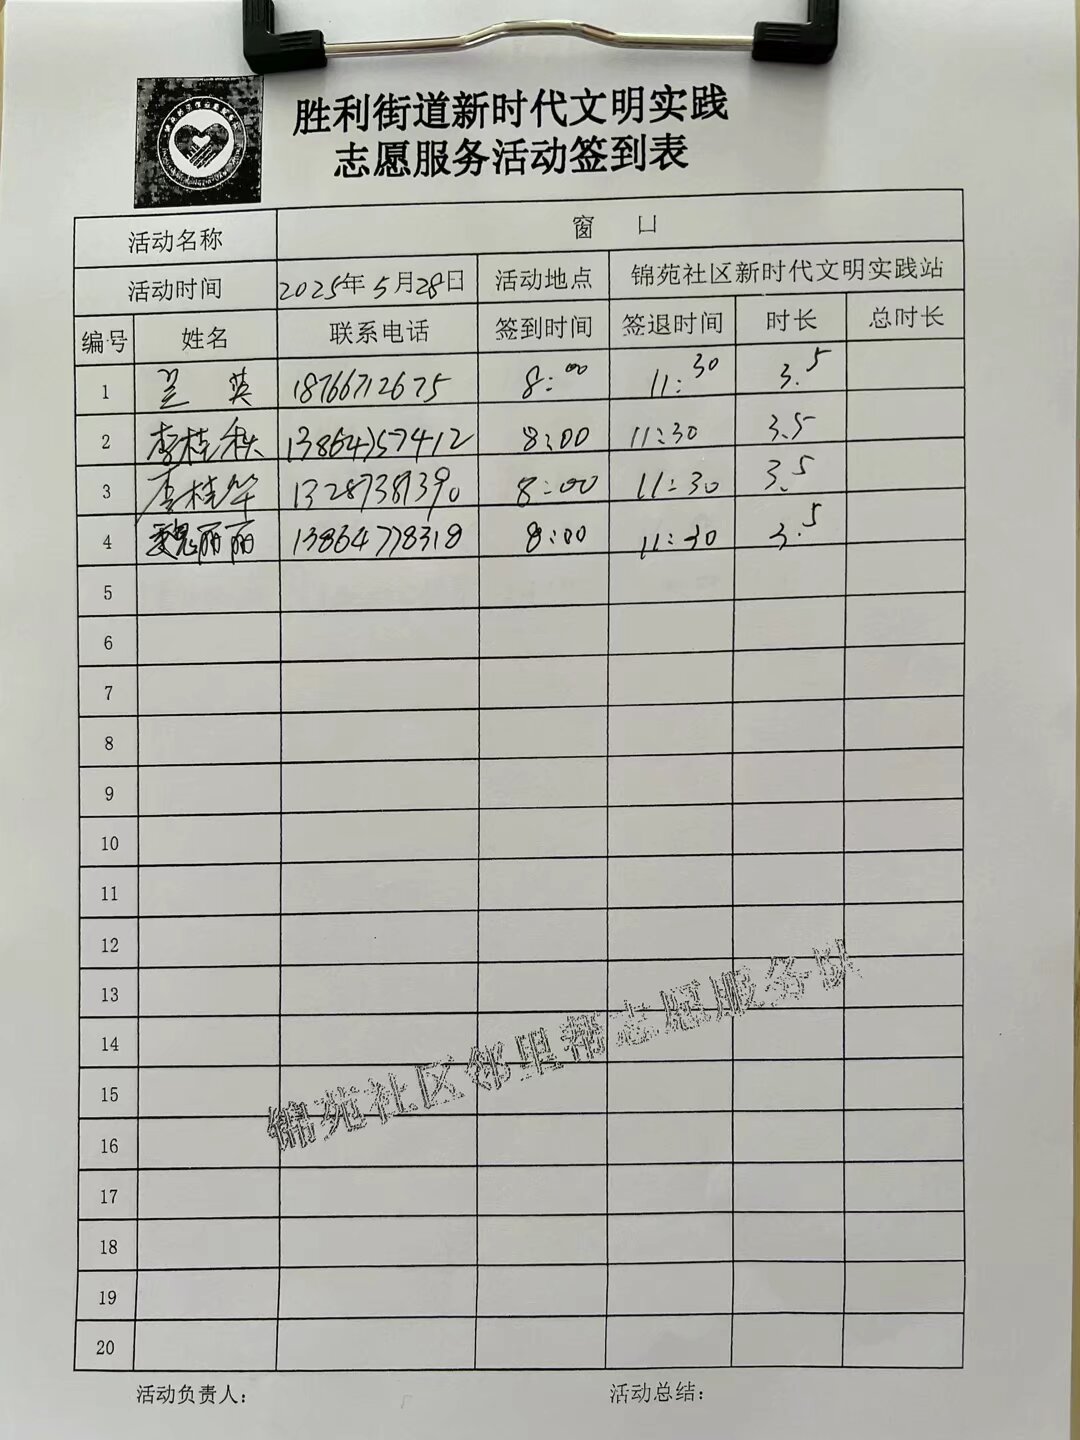 胜利街道新时代文明实践
志愿服务活动签到表
活动名称 窗 口
活动时间 2025年5月28日 活动地点 锦苑社区新时代文明实践站
编号 姓名 联系电话 签到时间 签退时间 时长 总时长
1 兰 英 18766712675 8:00 11:30 3.5
2 李桂秋 13864757412 8:00 11:30 3.5
3 李桂华 13287381390 8:00 11:30 3.5
4 魏丽丽 13864778318 8:00 11:30 3.5
5
6
7
8
9
10
11
12
13
14
15
16
17
18
19
20
锦苑社区邻里帮志愿服务队
活动负责人: 活动总结: